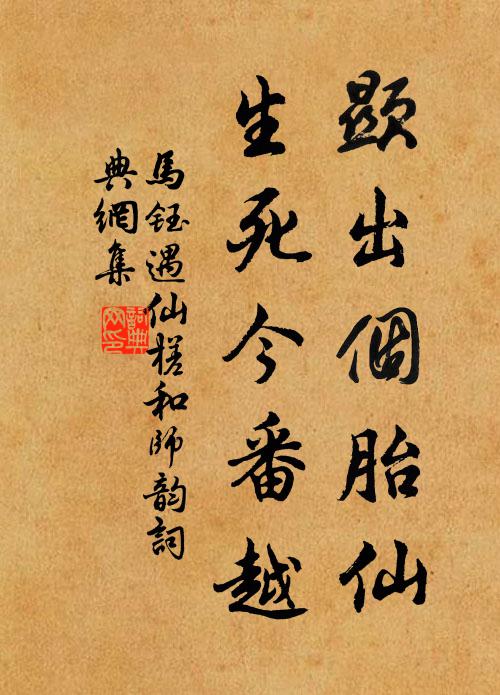 顯出個胎仙
生死今番越
馬鈺遇仙槎和師韵詞
典網集
詞典網印